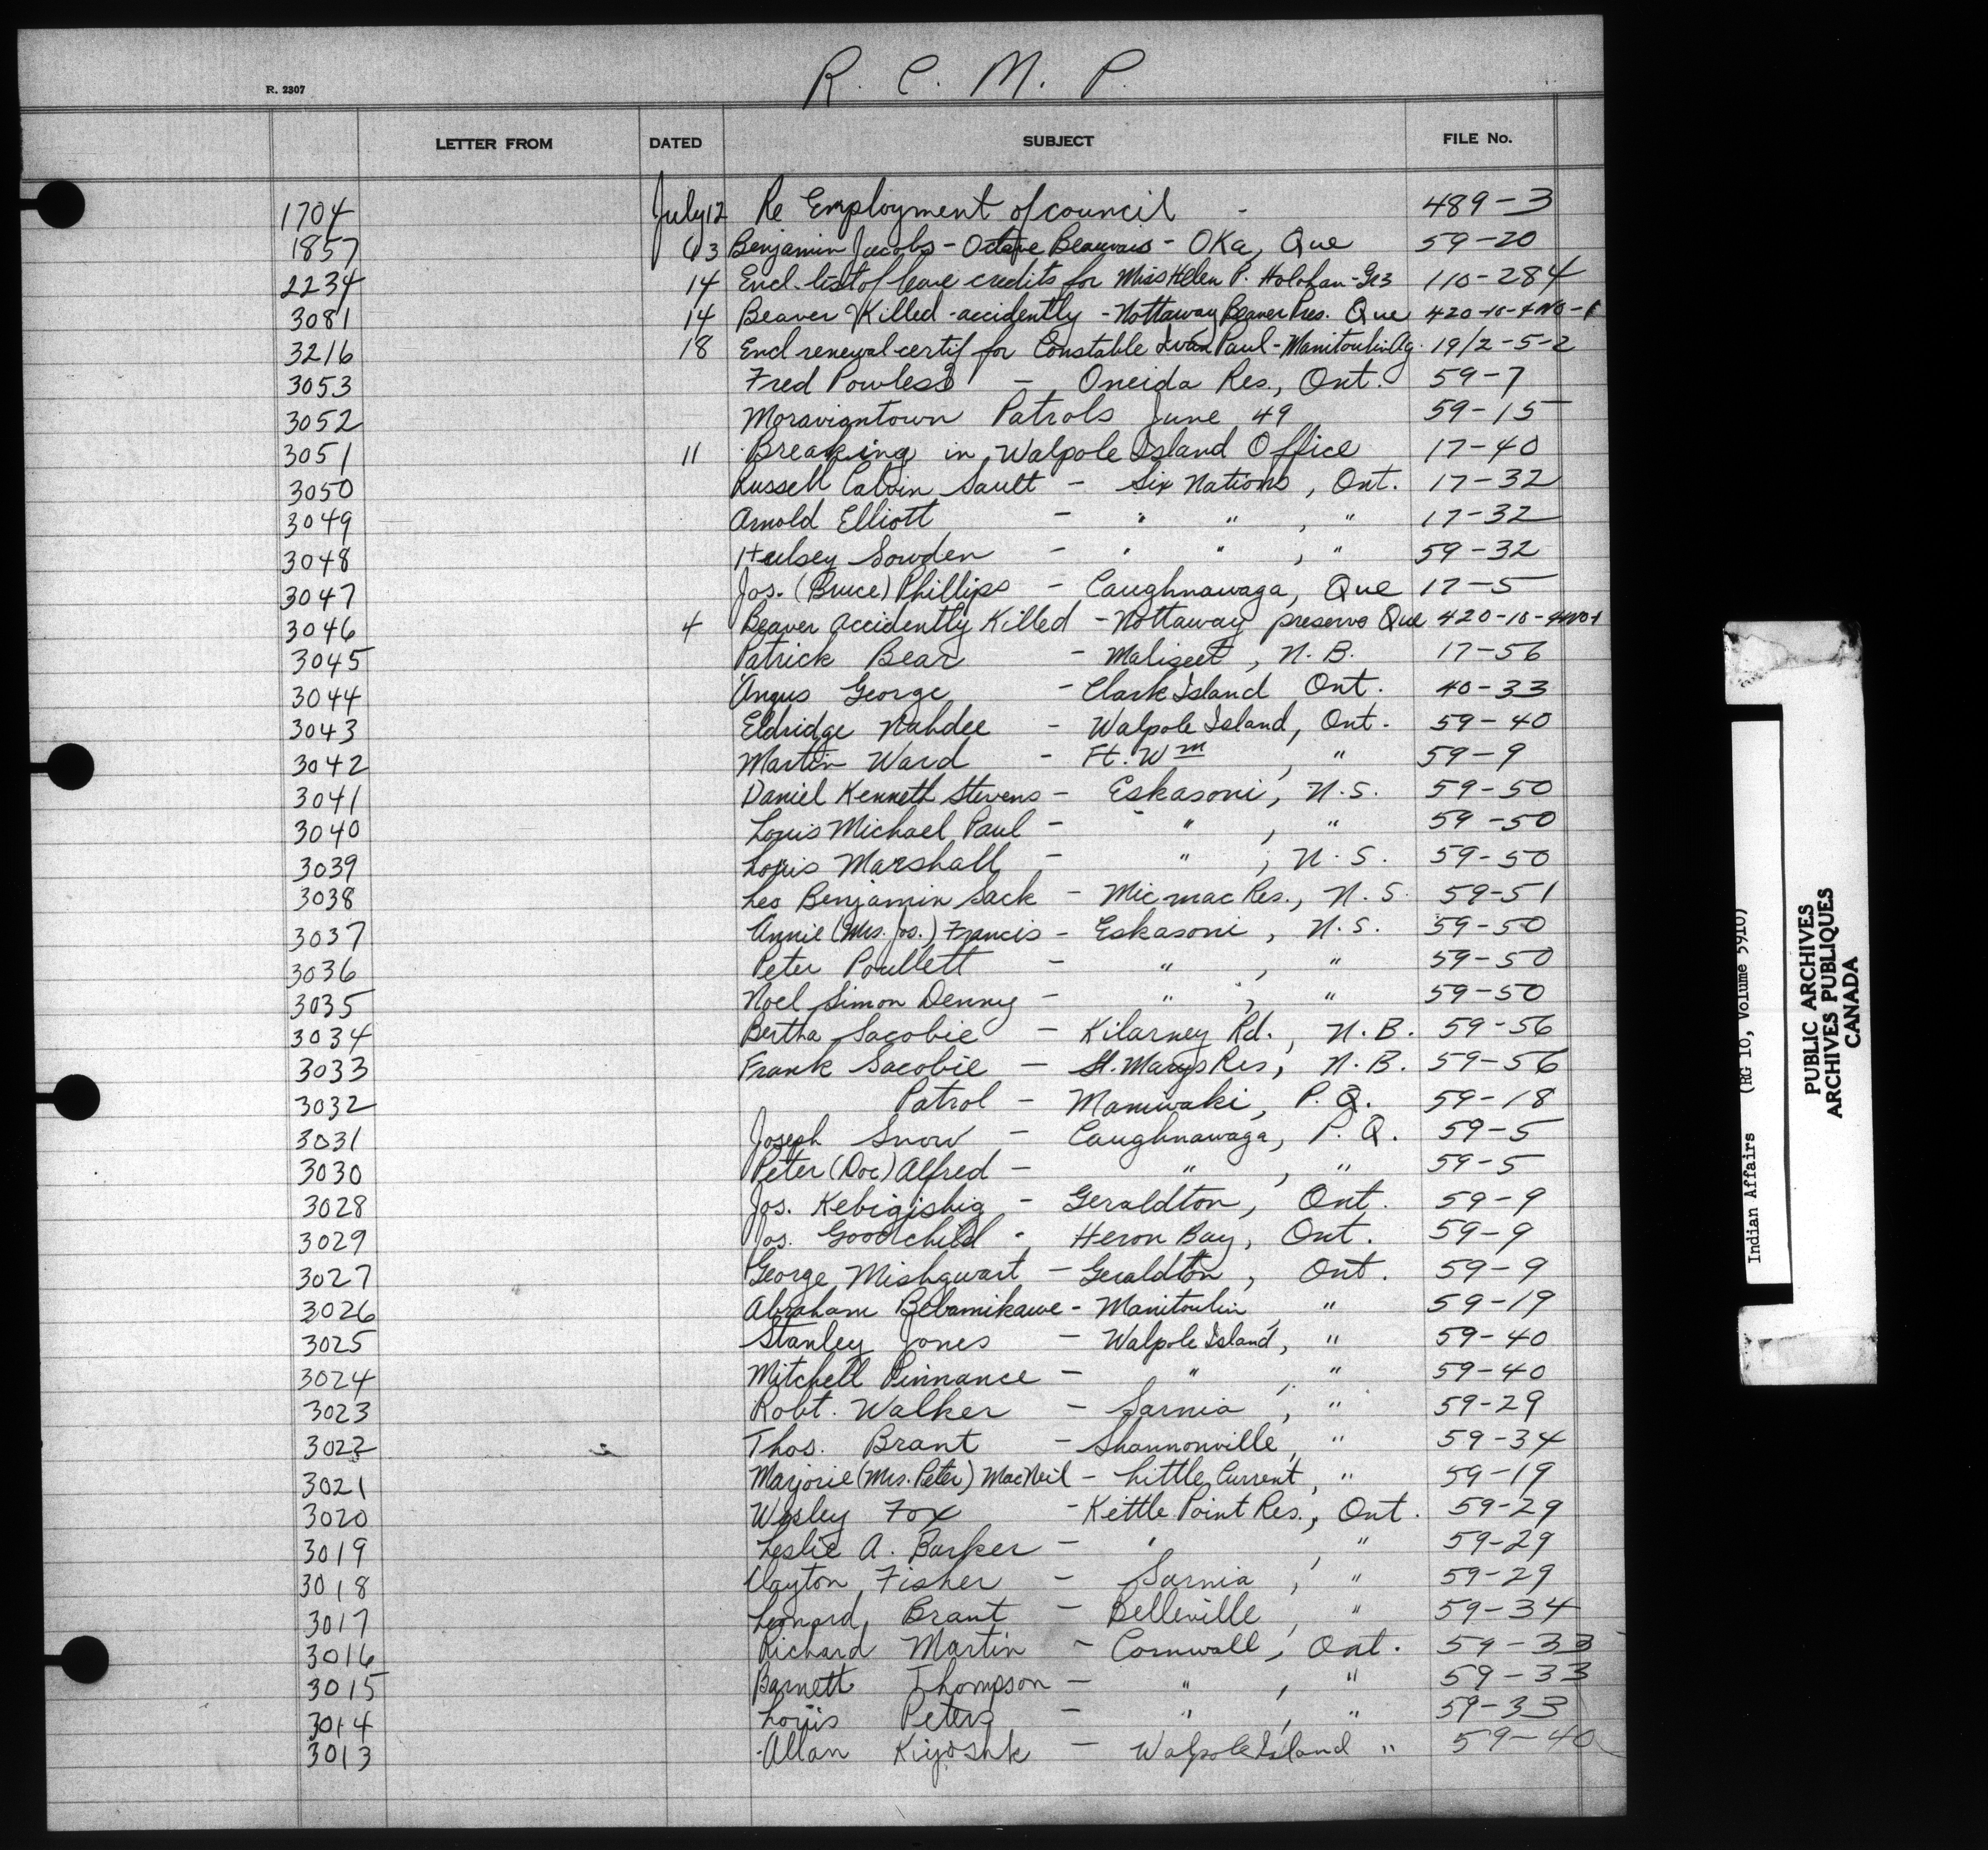 R. C. M. P.
R. 2307
LETTER FROM DATED SUBJECT FILE No.
1704 July 12 Re Employment of council - 489-3
1857 13 Benjamin Jacobs - Octave Beauvais - OKa, Que 59-20
2234 14 Encl. list of leave credits for Miss Helen P. Holohan - Gr3 110-284
3081 14 Beaver Killed - accidently - Nottaway Beaver Pres. Que 420-10-4NO-1
3216 18 Encl renewal certif for Constable Ivan Paul - Manitoulin Ag. 19/2-5-2
3053 Fred Powless - Oneida Res., Ont. 59-7
3052 Moraviantown Patrols June 49 59-15
3051 11 Breaking in Walpole Island Office 17-40
3050 Russell Calvin Sault - Six Nations, Ont. 17-32
3049 Arnold Elliott - " " , " 17-32
3048 Hulsey Sowden - " " , " 59-32
3047 Jos. (Bruce) Phillips - Caughnawaga, Que 17-5
3046 4 Beaver accidently Killed - Nottaway preserve Que 420-10-4NO1
3045 Patrick Bear - Maliseet, N.B. 17-56
3044 Angus George - Clark Island Ont. 40-33
3043 Eldridge Nahdee - Walpole Island, Ont. 59-40
3042 Martin Ward - Ft. Wm , " 59-9
3041 Daniel Kenneth Stevens - Eskasoni, N.S. 59-50
3040 Louis Michael Paul - " , " 59-50
3039 Louis Marshall - " , N.S. 59-50
3038 Leo Benjamin Sack - Micmac Res., N.S. 59-51
3037 Annie (Mrs. Jos.) Francis - Eskasoni, N.S. 59-50
3036 Peter Poullett - " , " 59-50
3035 Noel Simon Denny - " , " 59-50
3034 Bertha Sacobie - Kilarney Rd., N.B. 59-56
3033 Frank Sacobie - St. Marys Res, N.B. 59-56
3032 Patrol - Maniwaki, P.Q. 59-18
3031 Joseph Snow - Caughnawaga, P.Q. 59-5
3030 Peter (Doc) Alfred - " , " 59-5
3028 Jos. Kebigishig - Geraldton, Ont. 59-9
3029 Jos. Goodchild - Heron Bay, Ont. 59-9
3027 George Mishquart - Geraldton, Ont. 59-9
3026 Abraham Bebamikawe - Manitoulin " 59-19
3025 Stanley Jones - Walpole Island, " 59-40
3024 Mitchell Pinnance - " , " 59-40
3023 Robt. Walker - Sarnia, " 59-29
3022 Thos. Brant - Shannonville, " 59-34
3021 Marjorie (Mrs. Peter) MacNeil - Little Current, " 59-19
3020 Wesley Fox - Kettle Point Res., Ont. 59-29
3019 Leslie A. Barker - " , " 59-29
3018 Clayton Fisher - Sarnia, " 59-29
3017 Leonard Brant - Belleville, " 59-34
3016 Richard Martin - Cornwall, Ont. 59-33
3015 Barnett Thompson - " , " 59-33
3014 Louis Peters - " , " 59-33
3013 Allan Kiyoshk - Walpole Island " 59-40
Indian Affairs (RG 10, Volume 5910)
PUBLIC ARCHIVES
ARCHIVES PUBLIQUES
CANADA